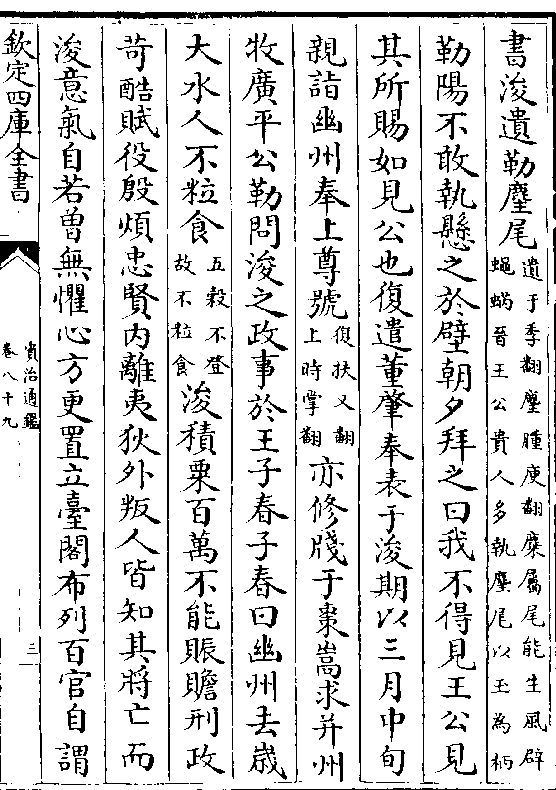 書浚遺勒麈尾
遺于季翻麈腫庾翻麋屬尾能生風辟
蠅蝸晉王公貴人多執麈尾以玉為柄
勒陽不敢執懸之於壁朝夕拜之曰我不得見王公見
其所賜如見公也復遣董肇奉表于浚期以三月中旬
親詣幽州奉上尊號
復扶又翻
上時掌翻
亦修牋于棗嵩求并州
牧廣平公勒問浚之政事於王子春子春曰幽州去歲
大水人不粒食
五穀不登
故不粒食
浚積粟百萬不能賑贍刑政
苛酷賦役殷煩忠賢内離夷狄外叛人皆知其將亡而
浚意氣自若曽無懼心方更置立臺閣布列百官自謂
欽定四庫全書
資治通鑑
卷八十九
三